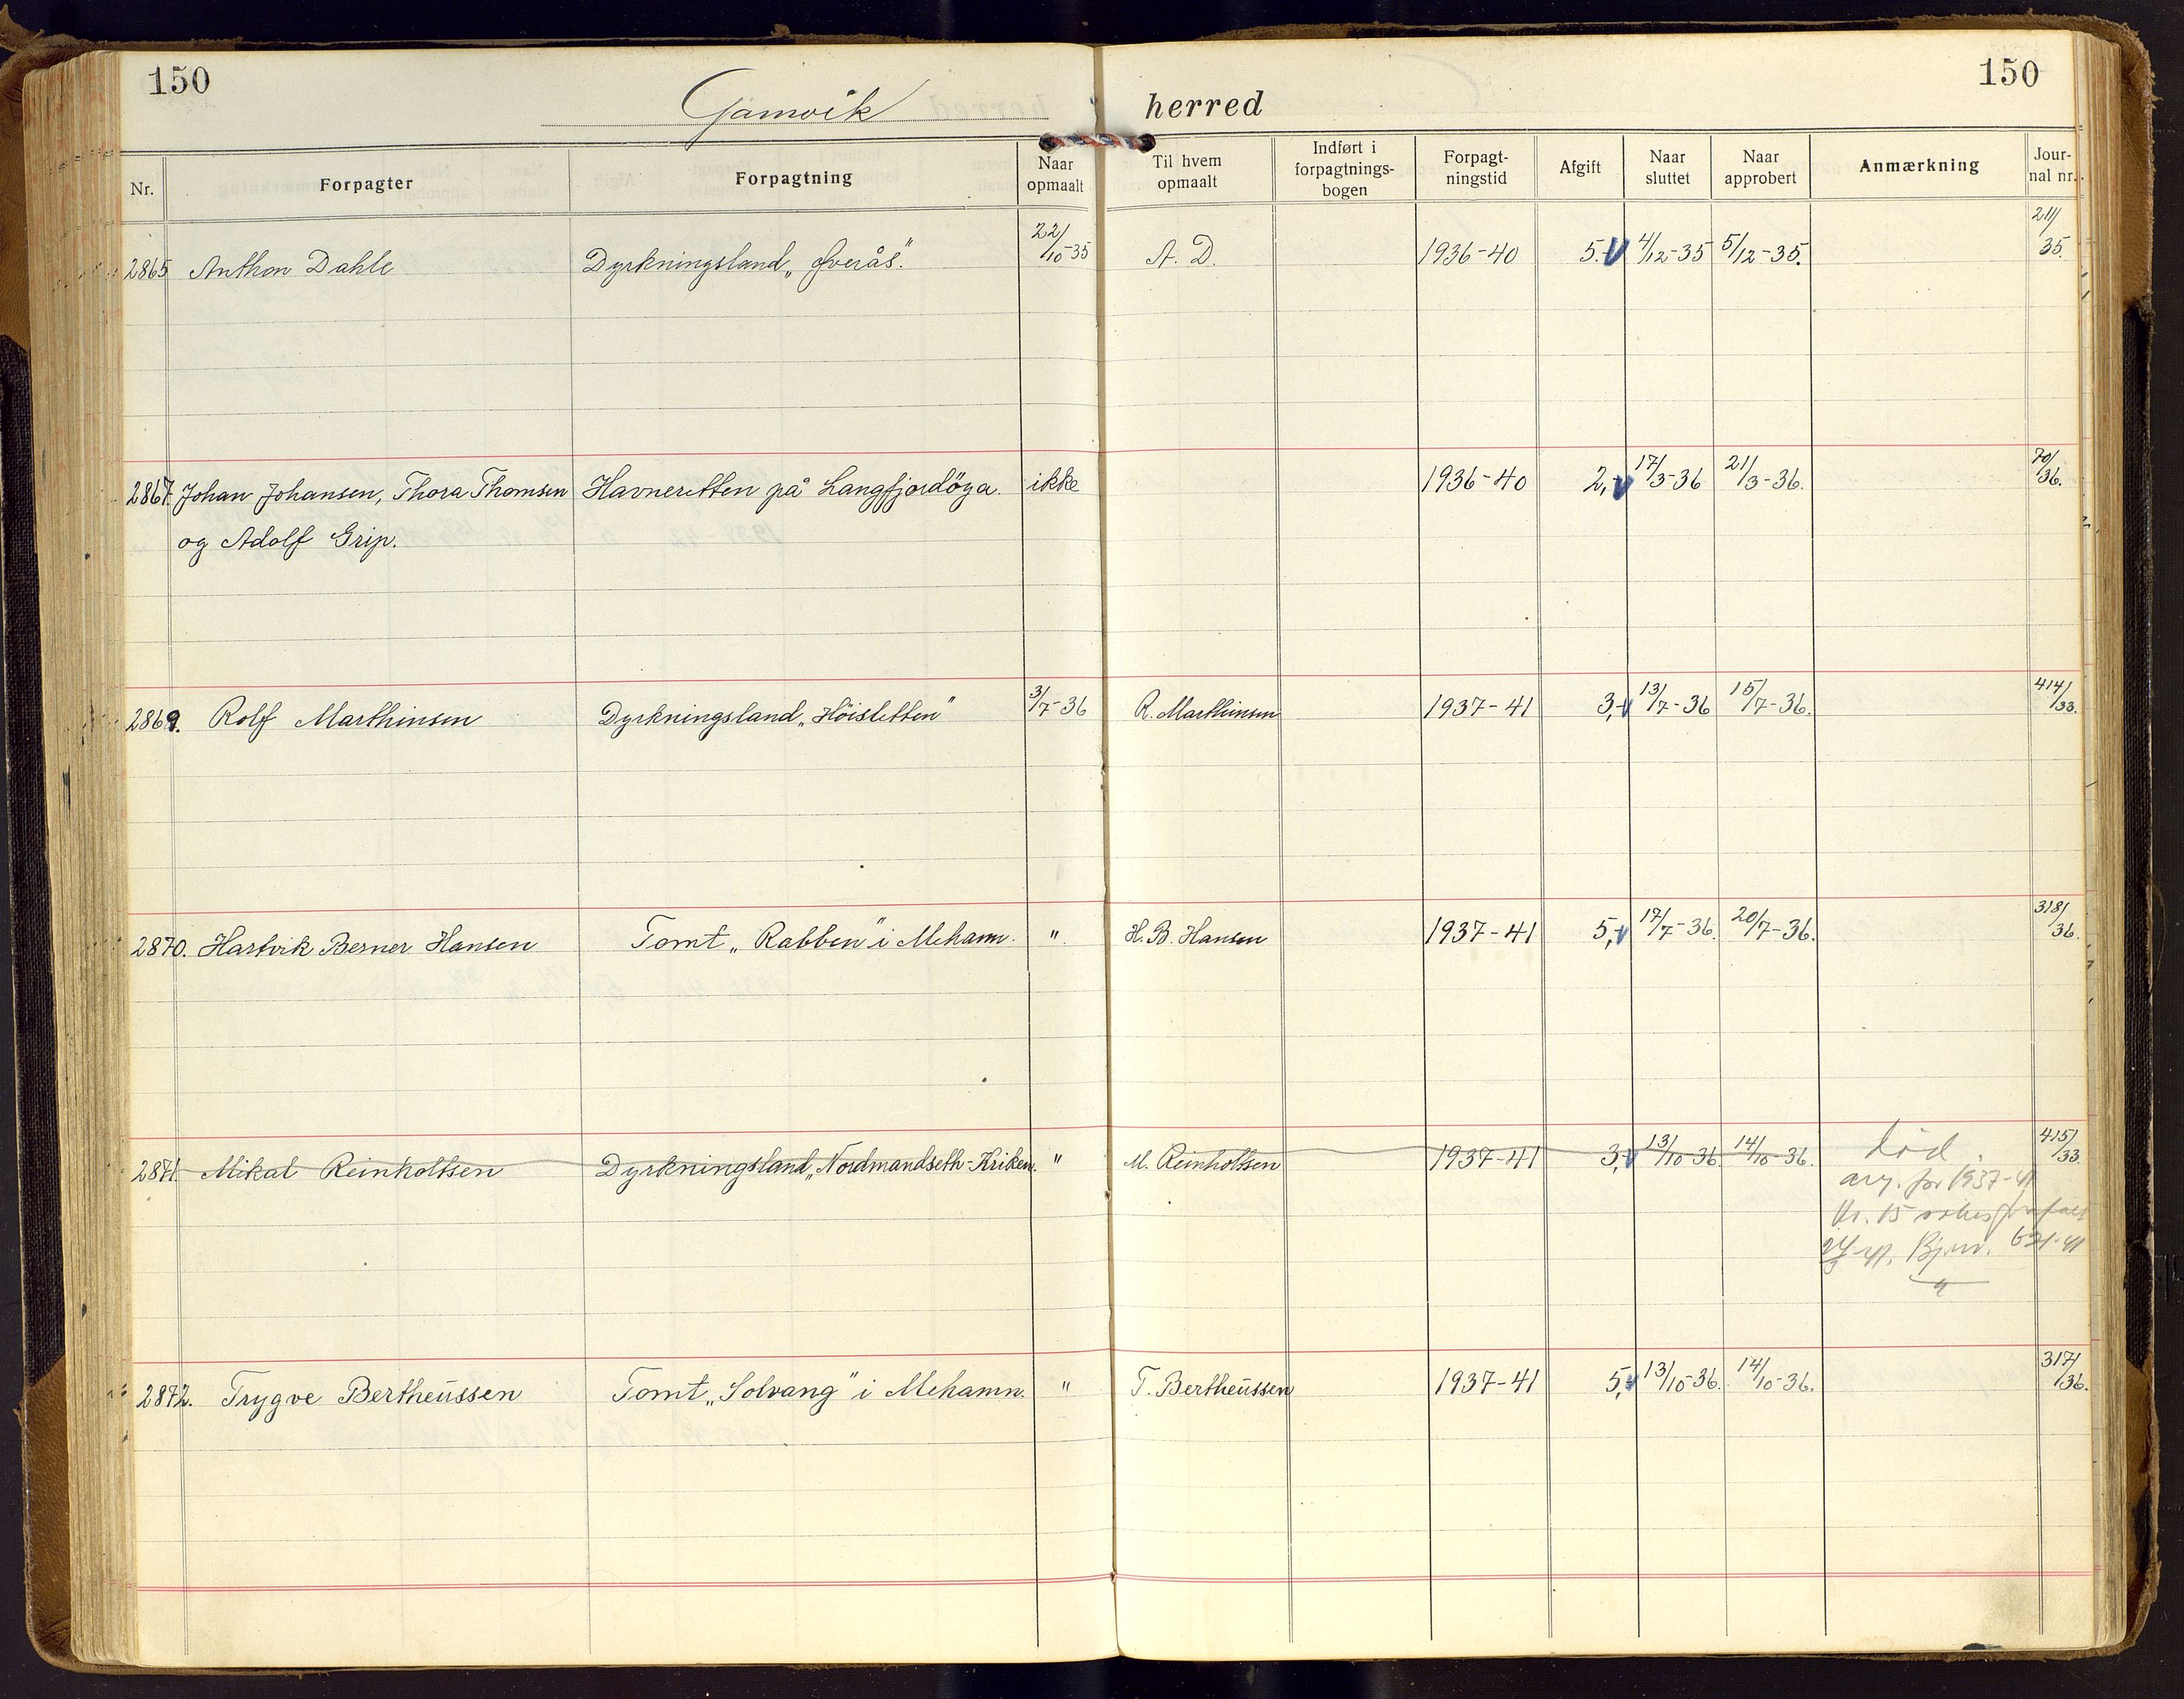 150
Gamvik herred
150
Nr. Forpagter Forpagtning Naar opmaalt Til hvem opmaalt Indført i forpagtnings-bogen Forpagt-ningstid Afgift Naar sluttet Naar approbert Anmærkning Jour-nal nr.
2865 Anthon Dahle Dyrkningsland „Øverås". 22/10-35 A. D. 1936-40 5.- 4/12-35 5/12-35. 211/35.
2867. Johan Johansen, Thora Thomsen Havneretten på Langfjordöya. ikke 1936-40 2,- 17/3-36 21/3-36. 70/36.
og Adolf Grip.
2869. Rolf Marthinsen Dyrkningsland „Höisletten" 3/7-36 R. Marthinsen 1937-41 3,- 13/7-36 15/7-36. 414/33.
2870. Hartvik Berner Hansen Tomt „Rabben" i Mehamn. " H. B. Hansen 1937-41 5,- 17/7-36. 20/7-36. 318/36.
2871. Mikal Reinholtsen Dyrkningsland „Nordmandseth-Kriken. " M. Reinholtsen 1937-41 3,- 13/10-36 14/10-36. død. 415/33.
avg. for 1937-41
kr. 15
621-41
2872. Trygve Bertheüssen Tomt „Solvang" i Mehamn. " T. Bertheüssen 1937-41 5,- 13/10-36. 14/10-36. 317/36.